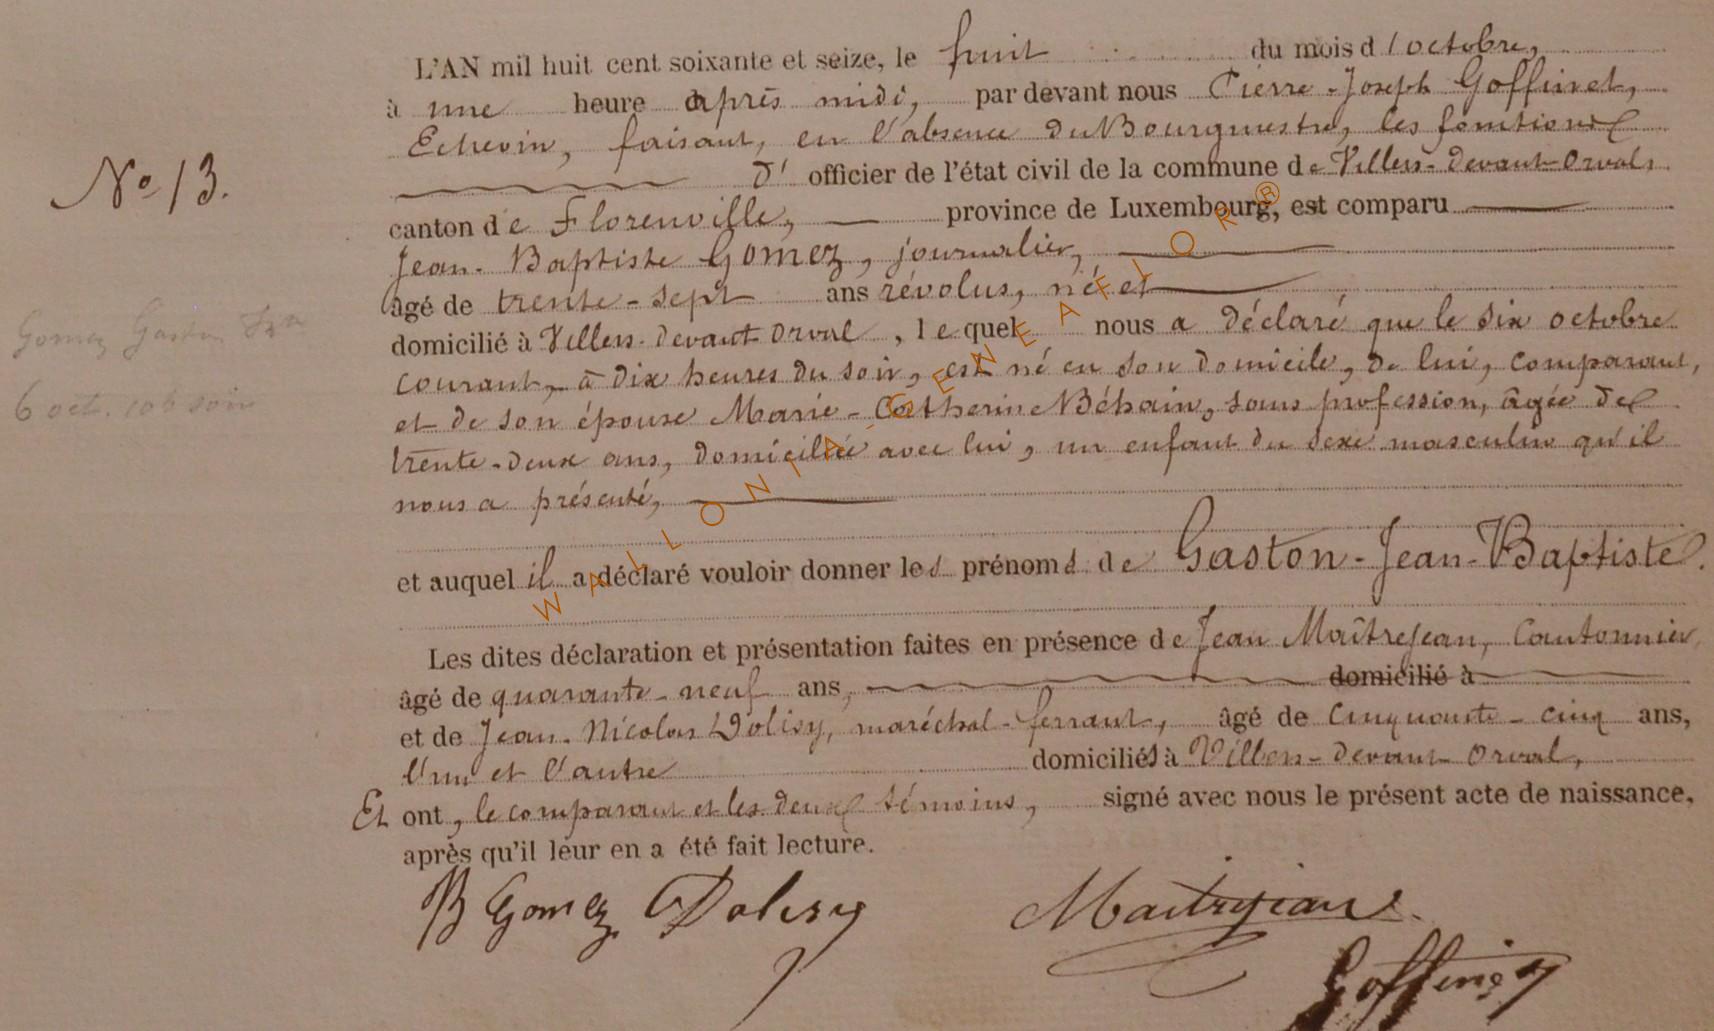 L'AN mil huit cent soixante et seize, le huit du mois d'octobre,
à une heure après midi, par devant nous Pierre-Joseph Goffinet,
Echevin, faisant, en l'absence du Bourgmestre, les fonctions
d' officier de l'état civil de la commune de Villers-devant-Orval,
N° 13.
canton de Florenville, province de Luxembourg, est comparu
Jean-Baptiste Gomez, journalier,
âgé de trente-sept ans révolus, né et
domicilié à Villers-devant Orval, lequel nous a déclaré que le six octobre
Gomez Gaston
courant, à dix heures du soir, est né en son domicile, de lui, comparant,
6 oct. 10h soir
et de son épouse Marie-Catherine Béhain, sans profession, âgée de
trente-deux ans, domiciliée avec lui, un enfant du sexe masculin qu'il
nous a présenté,
et auquel il a déclaré vouloir donner les prénoms de Gaston-Jean-Baptiste.
Les dites déclaration et présentation faites en présence de Jean Maîtrejean, Cantonnier,
âgé de quarante-neuf ans, domicilié à
et de Jean-Nicolas Dolisy, maréchal-ferrant, âgé de cinquante-cinq ans,
l'un et l'autre domiciliés à Villers-devant-Orval,
Et ont, le comparant et les deux témoins, signé avec nous le présent acte de naissance,
après qu'il leur en a été fait lecture.
B Gomez Dolisy Maitrejean
Goffinet
WALLONIA-GENEAFLOR®